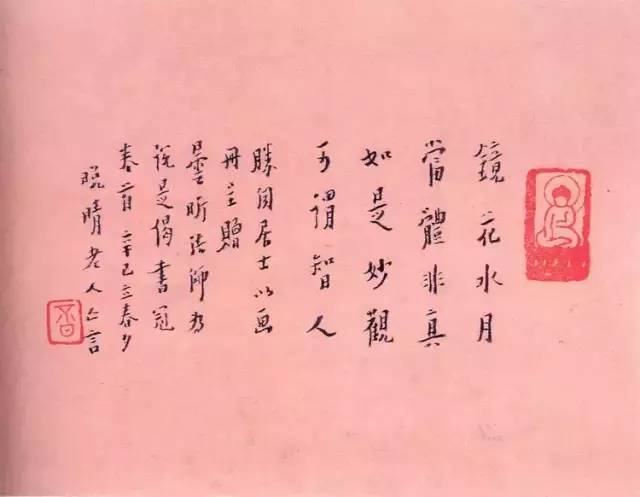 鏡花水月
當體非真
如是妙觀
可謂智人
勝居士以画
冊呈贈
曇昕法師為
說是偈書冠
卷首 辛巳立春夕
晚晴老人亡言